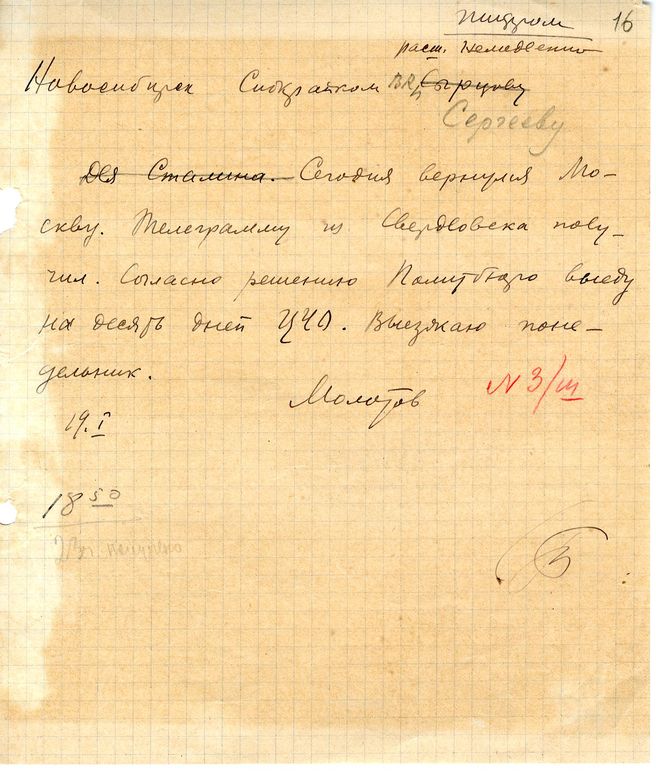 Шифром 16
расш. Немедленно
Новосибирск Сибкрайком ВКП Сырцову
Сергееву
Для Сталина. Сегодня вернулся Мо-
скву. Телеграмму из Свердловска полу-
чил. Согласно решению Политбюро выеду
на десять дней ЦЧО. Выезжаю поне-
дельник.
Молотов N 3/ш
19.I
18 50